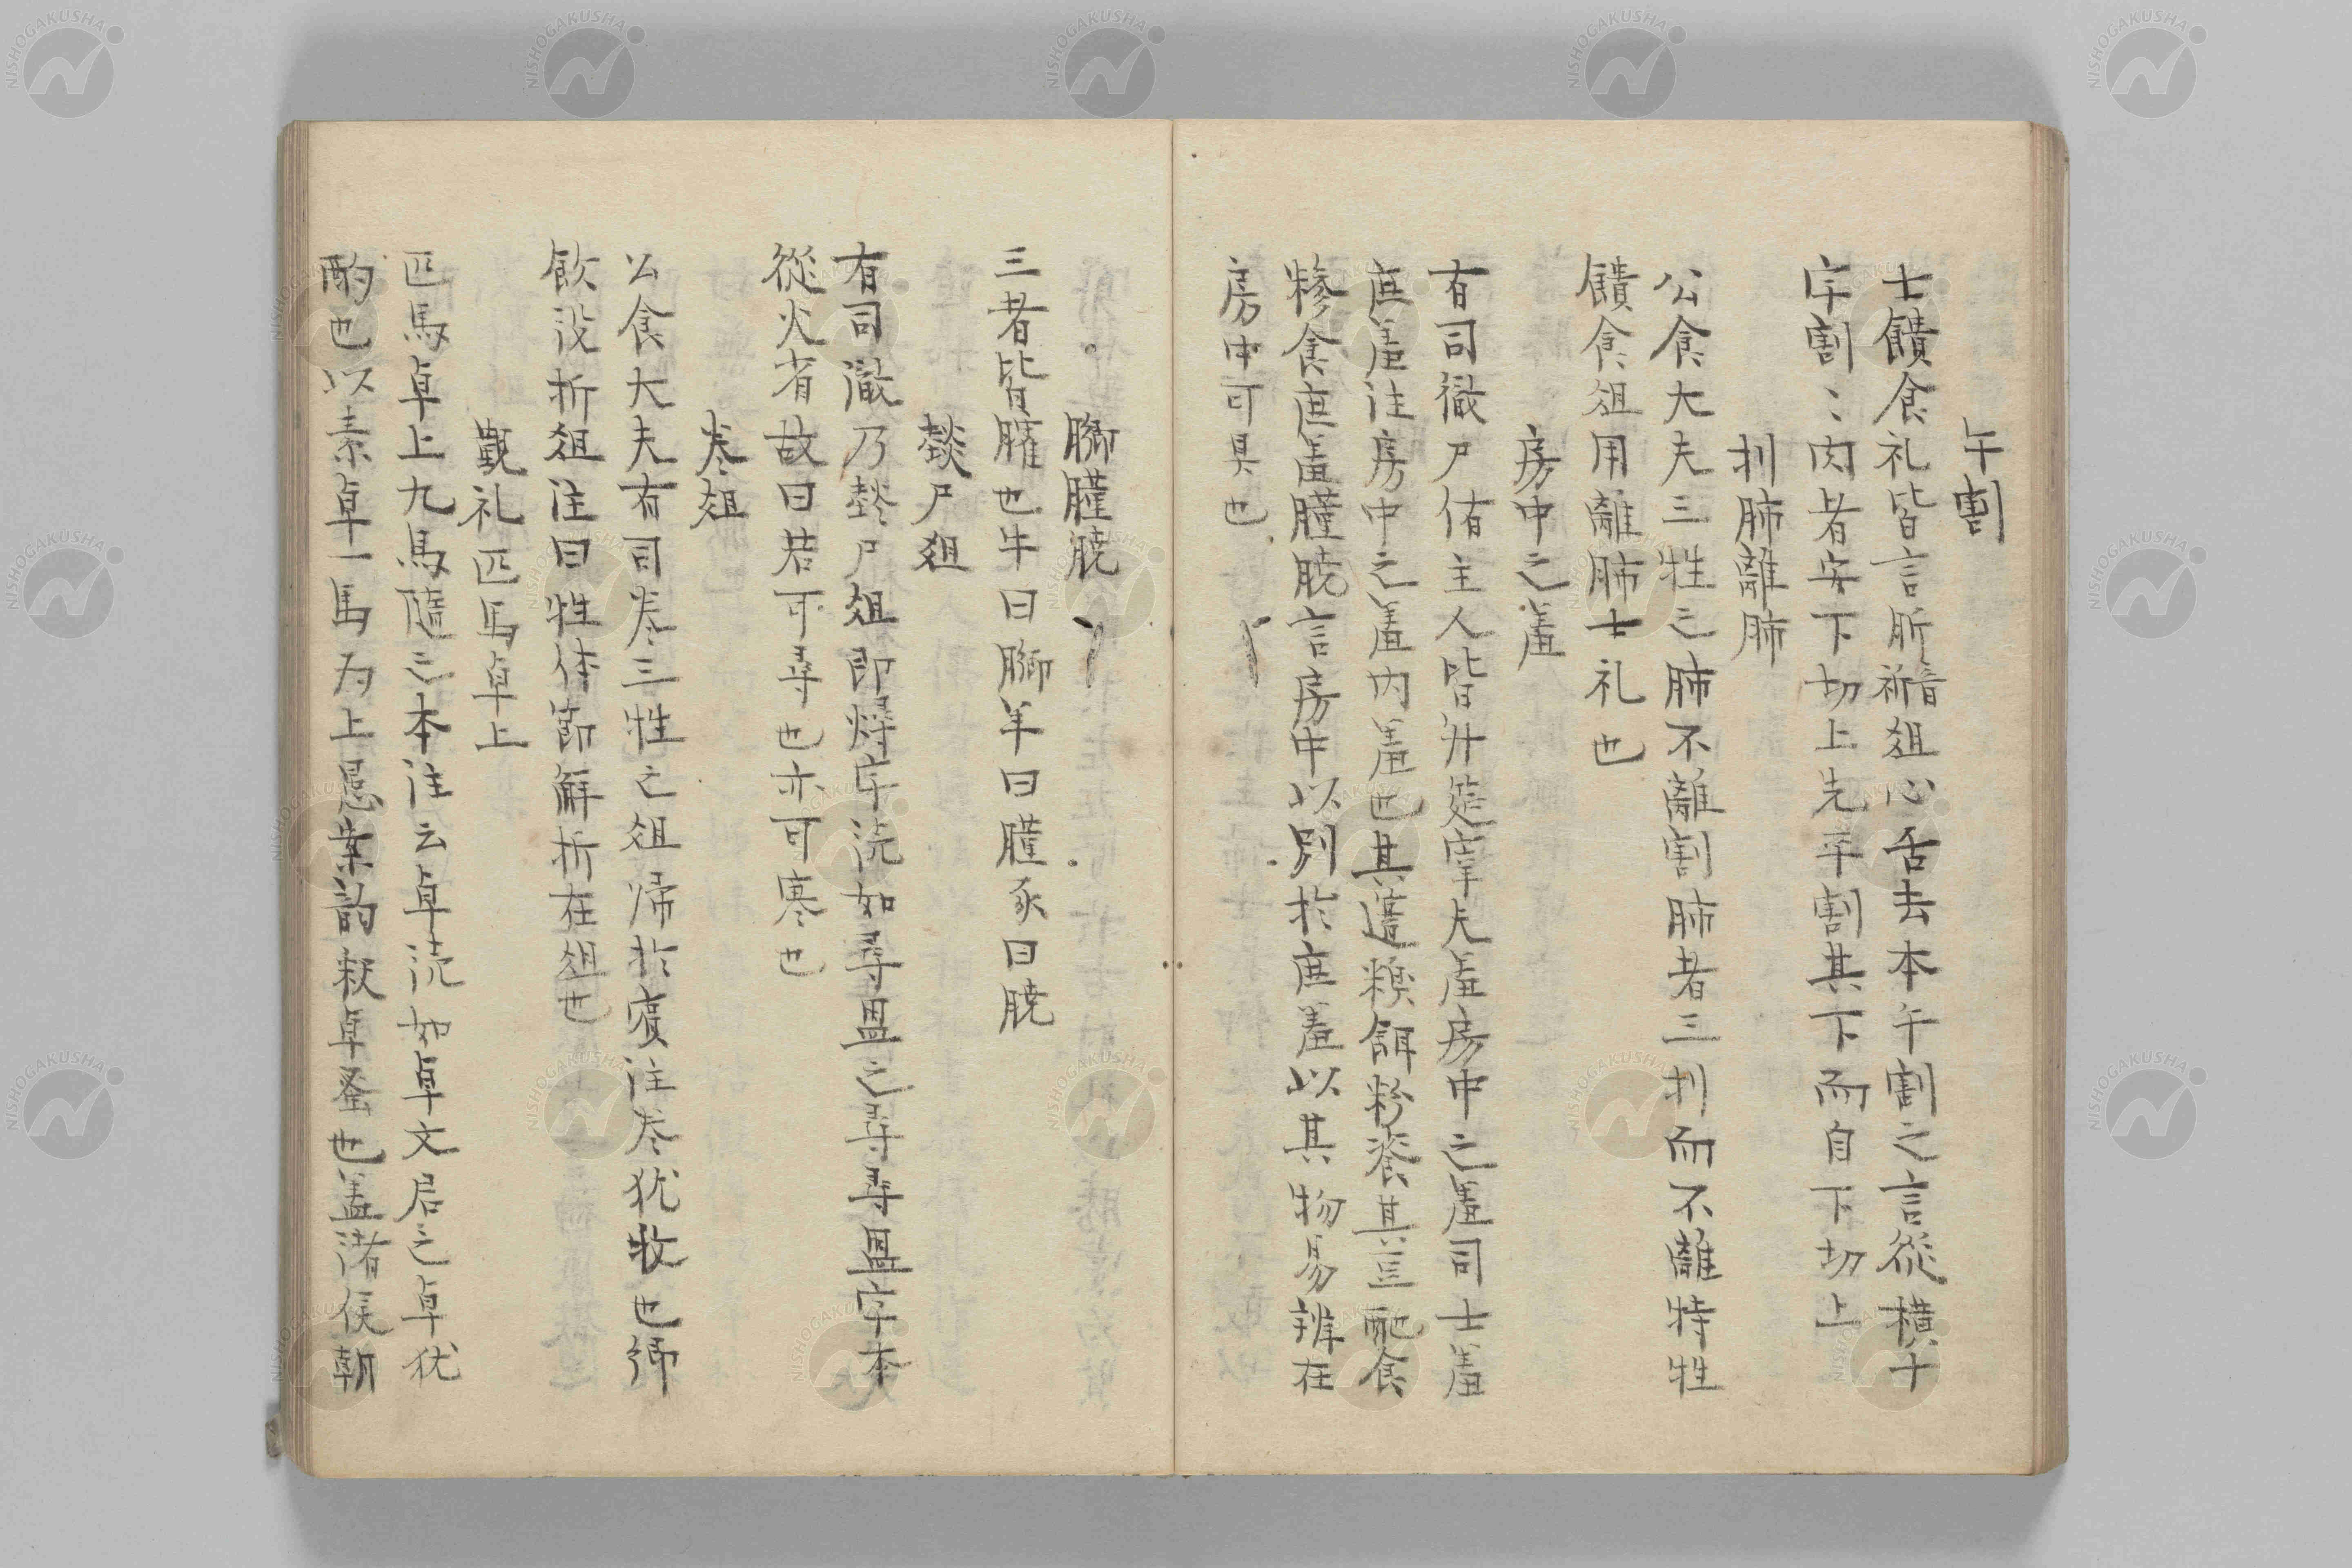 午割
士饋食礼皆言肵俎心舌去本午割之言從横十
字割〻肉者安下切上先平割其下而自下切上
刌肺離肺
公食大夫三牲之肺不離割肺者三刌而不離特牲
饋食俎用離肺士礼也
房中之羞
有司徹尸侑主人皆升筵宰夫羞房中之羞司士羞
庶羞注房中之羞内羞也其籩糗餌粉餈其豆酏食
糝食庶羞臐膮言房中以別於庶羞以其物易辨在
房中可具也
膷臐膮
三者皆臛也牛曰膷羊曰臐豕曰膮
燅尸俎
有司徹乃燅尸俎即燖字洗如尋温之尋尋温字本
從火省故曰若可尋也亦可寒也
卷俎
公食大夫有司卷三牲之俎帰於賓注卷犹收也
飲没折俎注曰牲体節解折在俎也
覲礼匹馬卓上
匹馬卓上九馬隨之本注云卓読如卓文君之卓犹
酌也以素卓一馬为上愚案韵釈卓蚤也盖諸侯朝